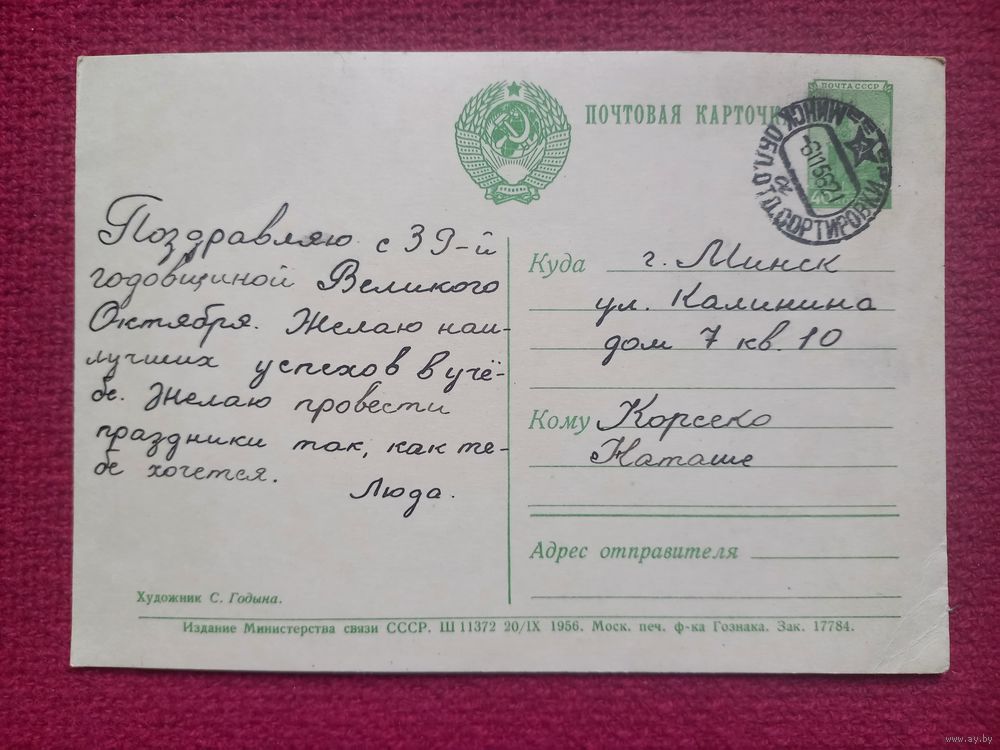 ПОЧТА СССР
ПОЧТОВАЯ КАРТОЧК
МИНСК ОБЛ. ОТД. СОРТИРОВКИ
-611562
40
Поздравляю с 39-й
годовщиной Великого
Октября. Желаю наи-
лучших успехов в учё-
бе. Желаю провести
праздники так, как те-
бе хочется.
Люда.
Куда г. Минск
ул. Калинина
дом 7 кв. 10
Кому Корсеко
Наташе
Адрес отправителя
Художник С. Годына.
Издание Министерства связи СССР. Ш 11372 20/IX 1956. Моск. печ. ф-ка Гознака. Зак. 17784.
www.ay.by